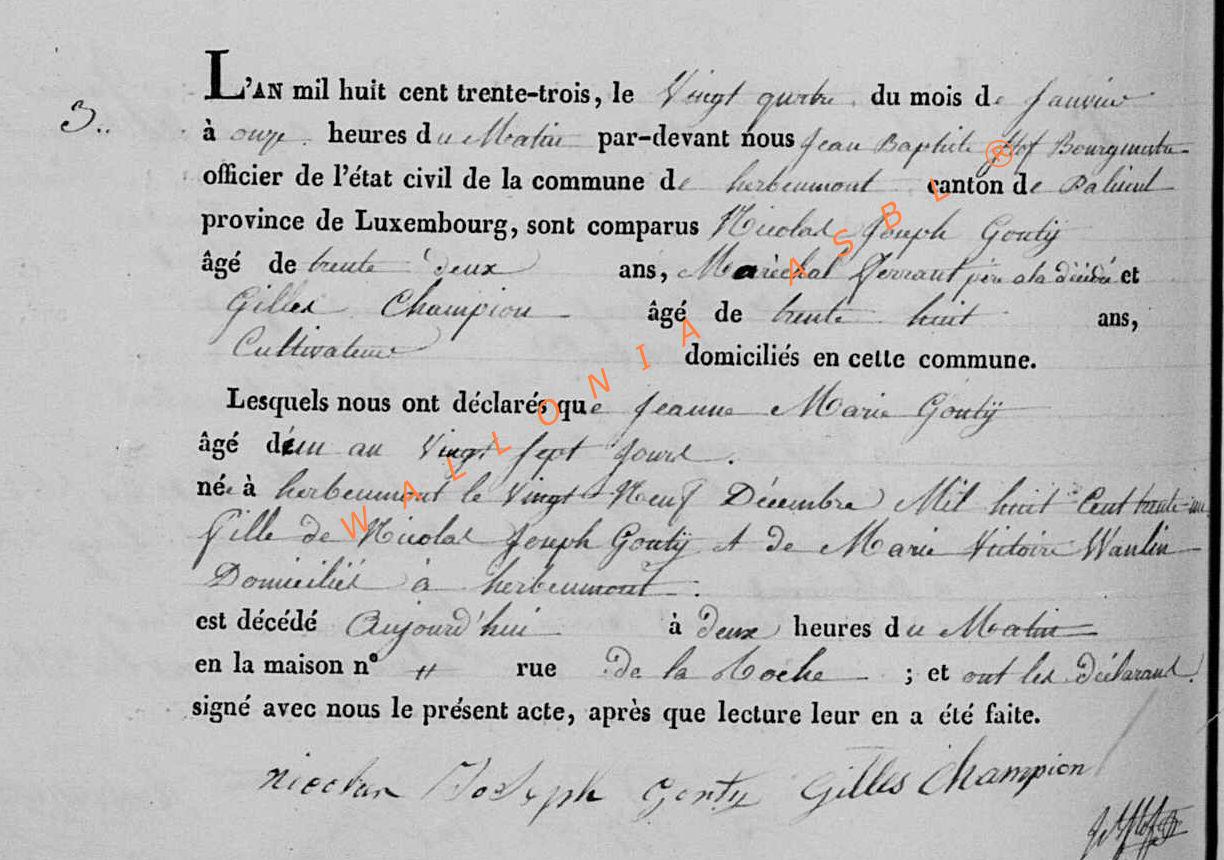 L'AN mil huit cent trente-trois, le Vingt quatre du mois de Janvier
3.. à onze heures du Matin par-devant nous Jean Baptiste Bourgmestre
officier de l'état civil de la commune de herbeumont canton de Paliseul
province de Luxembourg, sont comparus Nicolas Joseph Goutÿ
âgé de trente deux ans, Maréchal ferrant père a la décédé et
Gilles Champion âgé de trente huit ans,
Cultivateur domiciliés en cette commune.
Lesquels nous ont déclarés que Jeanne Marie Goutÿ
âgé d'un an Vingt sept Jours.
née à herbeumont le Vingt Neuf Décembre Mil huit Cent trente-un
fille de Nicolas Joseph Goutÿ et de Marie Victoire Wanlin
Domiciliés à herbeumont.
est décédé Aujourd'hui à deux heures du Matin
en la maison n° " rue de la Roche ; et ont les déclarans
signé avec nous le présent acte, après que lecture leur en a été faite.
nicolas Joseph Gouty Gilles Champion
WALLONIA ASBL ®